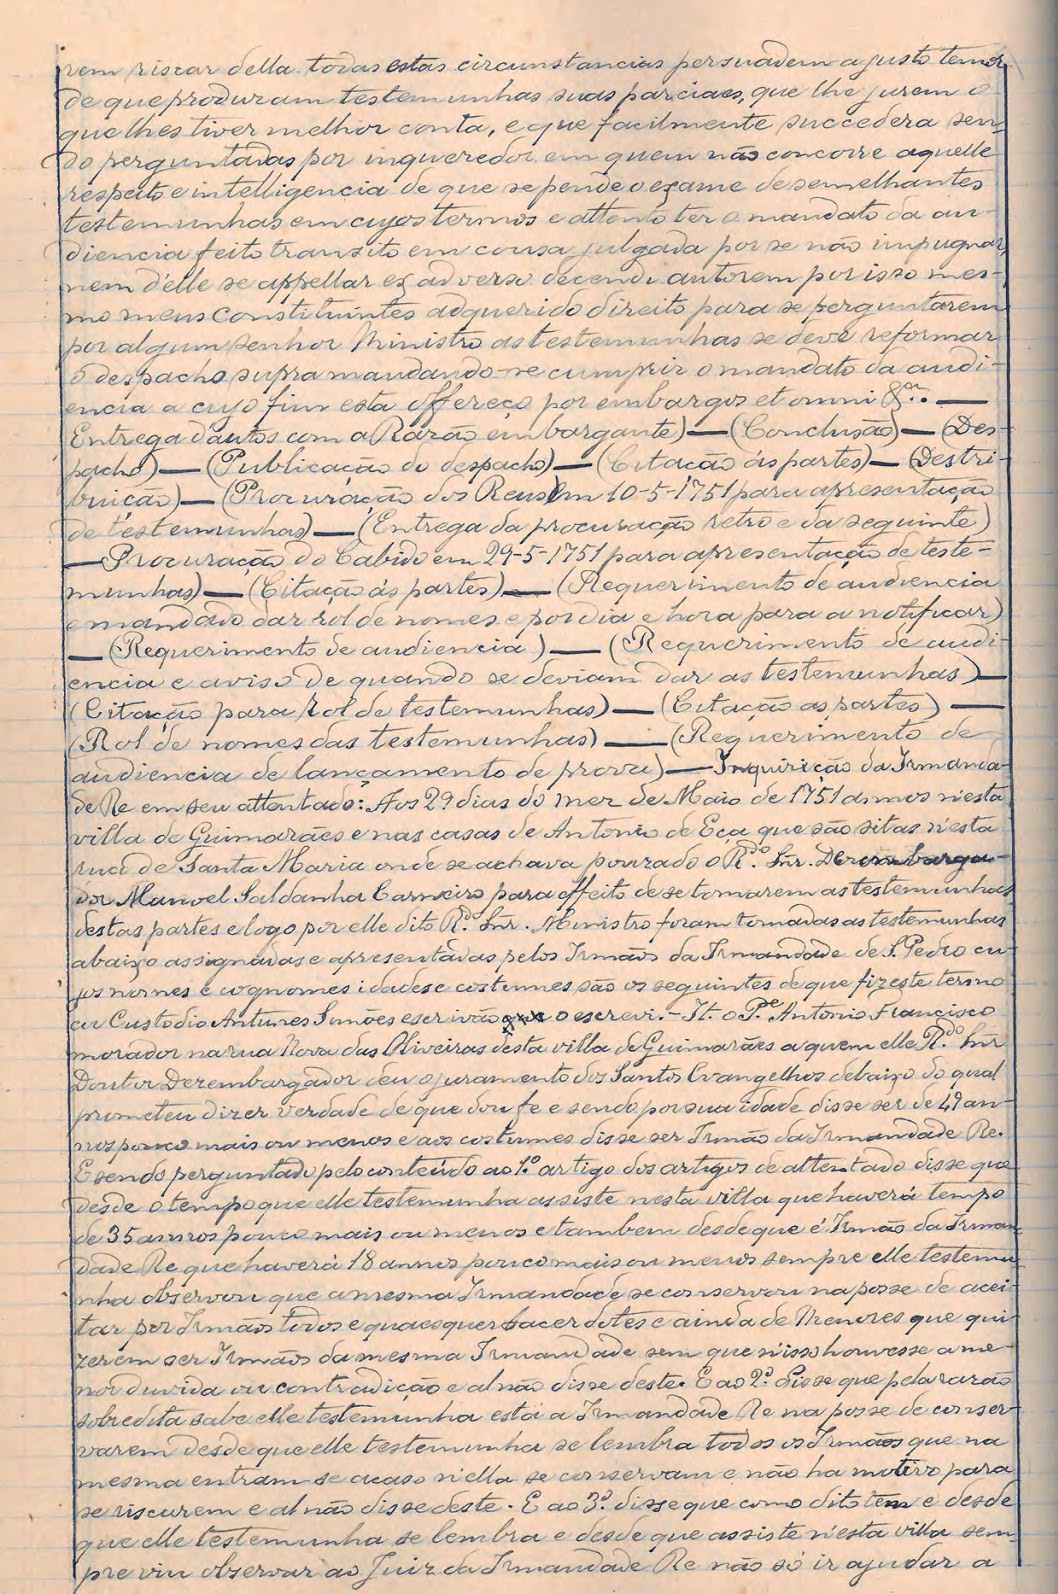 rem riscar della. todas estas circunstancias persuadem a justo temor
de que produram testemunhas suas parciaes, que lhe jurem o
que lhes tiver melhor conta, e que facilmente succedera sen-
do perguntadas por inqueredor em quem não concorre aquelle
respeito e intelligencia de que se pende o exame de semelhantes
testemunhas em cujos termos e attento ter o mandato da au-
diencia feito transito em cousa julgada por se não impugnar,
nem d'elle se appellar ex adverso decendi autorem por isso mes-
mo meus constituintes adquerido direito para se perguntarem
por algum senhor Ministro as testemunhas se deve reformar
o despacho supra mandando-se cumprir o mandato da audi-
encia a cujo fim esta offereço por embargos et omni &.ª —
Entrega d'autos com a Razão embargante) — (Conclusão) — (Des-
pacho) — (Publicação do despacho) — (Citação ás partes) — (Destri-
buição) — (Procuração dos Reus em 10-5-1751 para apresentação
de testemunhas) — (Entrega da procuração retro e da seguinte)
— Procuração do Cabido em 29-5-1751 para apresentação de teste-
munhas) — (Citação ás partes) — (Requerimento de audiencia
e mandado dar rol de nomes e por dia e hora para a notificar)
— (Requerimento de audiencia) — (Requerimento de audi-
encia e aviso de quando se deviam dar as testemunhas) —
(Citação para rol de testemunhas) — (Citação as partes) —
(Rol de nomes das testemunhas) — (Requerimento de
audiencia de lançamento de prova) — Inquirição da Irmanda-
de Re em seu attentado: Aos 29 dias do mez de Maio de 1751 annos n'esta
villa de Guimarães e nas casas de Antonio de Eça que são sitas n'esta
rua de Santa Maria onde se achava pouzado o R.do Snr. Dezembarga-
dor Manoel Saldanha Carneiro para effeito de se tomarem as testemunhas
destas partes e logo por elle dito R.do Snr. Ministro foram tomadas as testemunhas
abaixo assignadas e apresentadas pelos Irmãos da Irmandade de S. Pedro cu-
jos nomes e cognomes idades e costumes são os seguintes de que fiz este termo
eu Custodio Antunes Simões escrivão o escrevi. – It. o P.e Antonio Francisco
morador na rua Nova das Oliveiras desta villa de Guimarães a quem elle R.do Snr
Doutor Dezembargador deu o juramento dos Santos Evangelhos debaixo do qual
prometeu dizer verdade de que dou fe e sendo por sua idade disse ser de 49 an-
nos pouco mais ou menos e aos costumes disse ser Irmão da Irmandade Re.
E sendo perguntado pelo conteúdo ao 1.º artigo dos artigos de attentado disse que
desde o tempo que elle testemunha assiste nesta villa que haverá tempo
de 35 annos pouco mais ou menos e tambem desde que é Irmão da Irman-
dade Re que haverá 18 annos pouco mais ou menos sempre elle testemu-
nha observou que a mesma Irmandade se conservou na posse de acei-
tar por Irmãos todos e quaesquer sacerdotes e ainda de Menores que qui-
zerem ser Irmãos da mesma Irmandade sem que n'isso houvesse a me-
nor duvida ou contradição e al não disse deste. E ao 2.º disse que pela razão
sobredita sabe elle testemunha está a Irmandade Re na posse de conser-
varem desde que elle testemunha se lembra todos os Irmãos que na
mesma entram se acaso n'ella se conservam e não ha motivo para
se riscarem e al não disse deste. E ao 3.º disse que como dito tem e desde
que elle testemunha se lembra e desde que assiste n'esta villa sem-
pre viu observar ao Juiz da Irmandade Re não só ir ajudar a